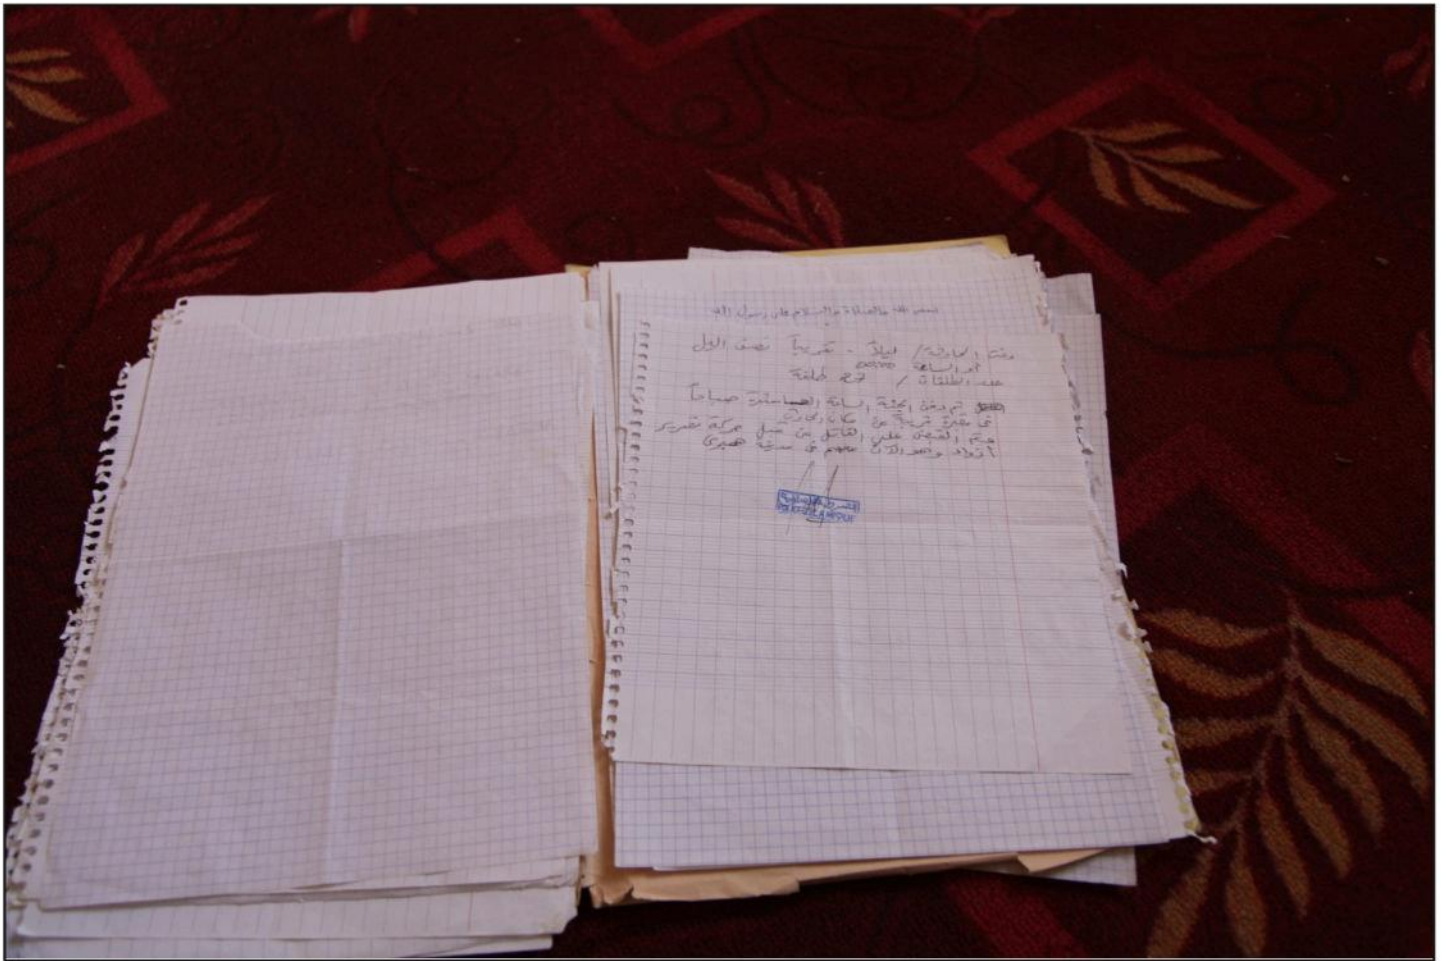 والصلاة والسلام على رسول الله
وقت الحادثة / ليلاً - تقريباً نصف الليل
أو الساعة
عدد الطلقات / 27 طلقة
تم دفن الجثة الساعة العاشرة صباحاً
في مقبرة قريبة من مكان الحادث
وتم القبض على القاتل من قبل حركة تحرير
أزواد وهو الآن معهم في مدينة همبري